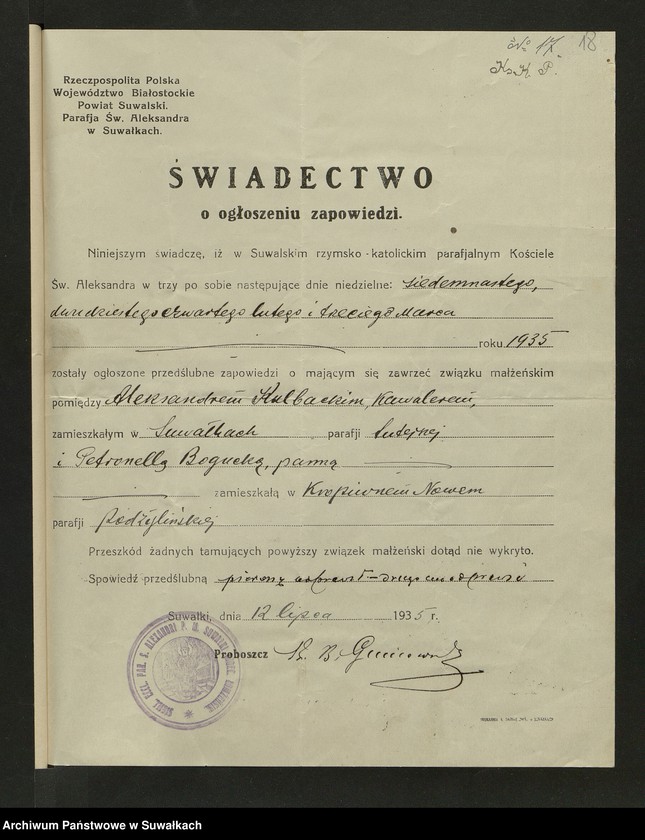 № 17. 18
K. K. P.
Rzeczpospolita Polska
Województwo Białostockie
Powiat Suwalski.
Parafja Św. Aleksandra
w Suwałkach.
ŚWIADECTWO
o ogłoszeniu zapowiedzi.
Niniejszym świadczę, iż w Suwalskim rzymsko-katolickim parafjalnym Kościele
Św. Aleksandra w trzy po sobie następujące dnie niedzielne: siedemnastego,
dwudziestego czwartego lutego i trzeciego Marca
roku 1935
zostały ogłoszone przedślubne zapowiedzi o mającym się zawrzeć związku małżeńskim
pomiędzy Aleksandrem Kulbackim, Kawalerem,
zamieszkałym w Suwałkach parafji tutejszej
i Petronellą Bogucką, panną
zamieszkałą w Kropiwnem Nowem
parafji
Przeszkód żadnych tamujących powyższy związek małżeński dotąd nie wykryto.
Spowiedź przedślubną pierwszą
Suwałki, dnia 12 lipca 1935 r.
Proboszcz
Archiwum Państwowe w Suwałkach